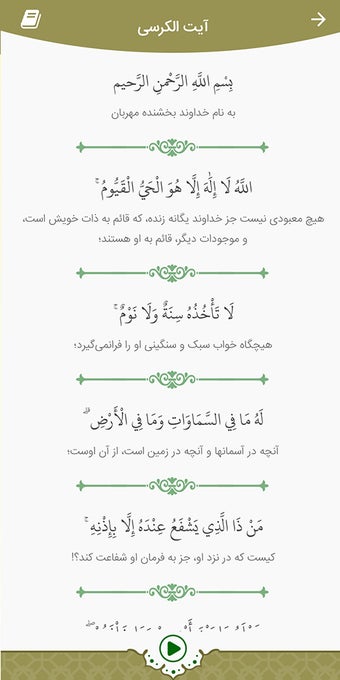 آیت الکرسی
بِسْمِ اللَّهِ الرَّحْمنِ الرَّحیم
به نام خداوند بخشنده مهربان
اللَّهُ لَا إِلَٰهَ إِلَّا هُوَ الْحَيُّ الْقَيُّومُ ۚ
هیچ معبودی نیست جز خداوند یگانه زنده، که قائم به ذات خویش است،
و موجودات دیگر، قائم به او هستند؛
لَا تَأْخُذُهُ سِنَةٌ وَلَا نَوْمٌ ۚ
هیچگاه خواب سبک و سنگینی او را فرانمی‌گیرد؛
لَهُ مَا فِي السَّمَاوَاتِ وَمَا فِي الْأَرْضِ ۗ
آنچه در آسمانها و آنچه در زمین است، از آن اوست؛
مَنْ ذَا الَّذِي يَشْفَعُ عِنْدَهُ إِلَّا بِإِذْنِهِ ۚ
کیست که در نزد او، جز به فرمان او شفاعت کند؟!